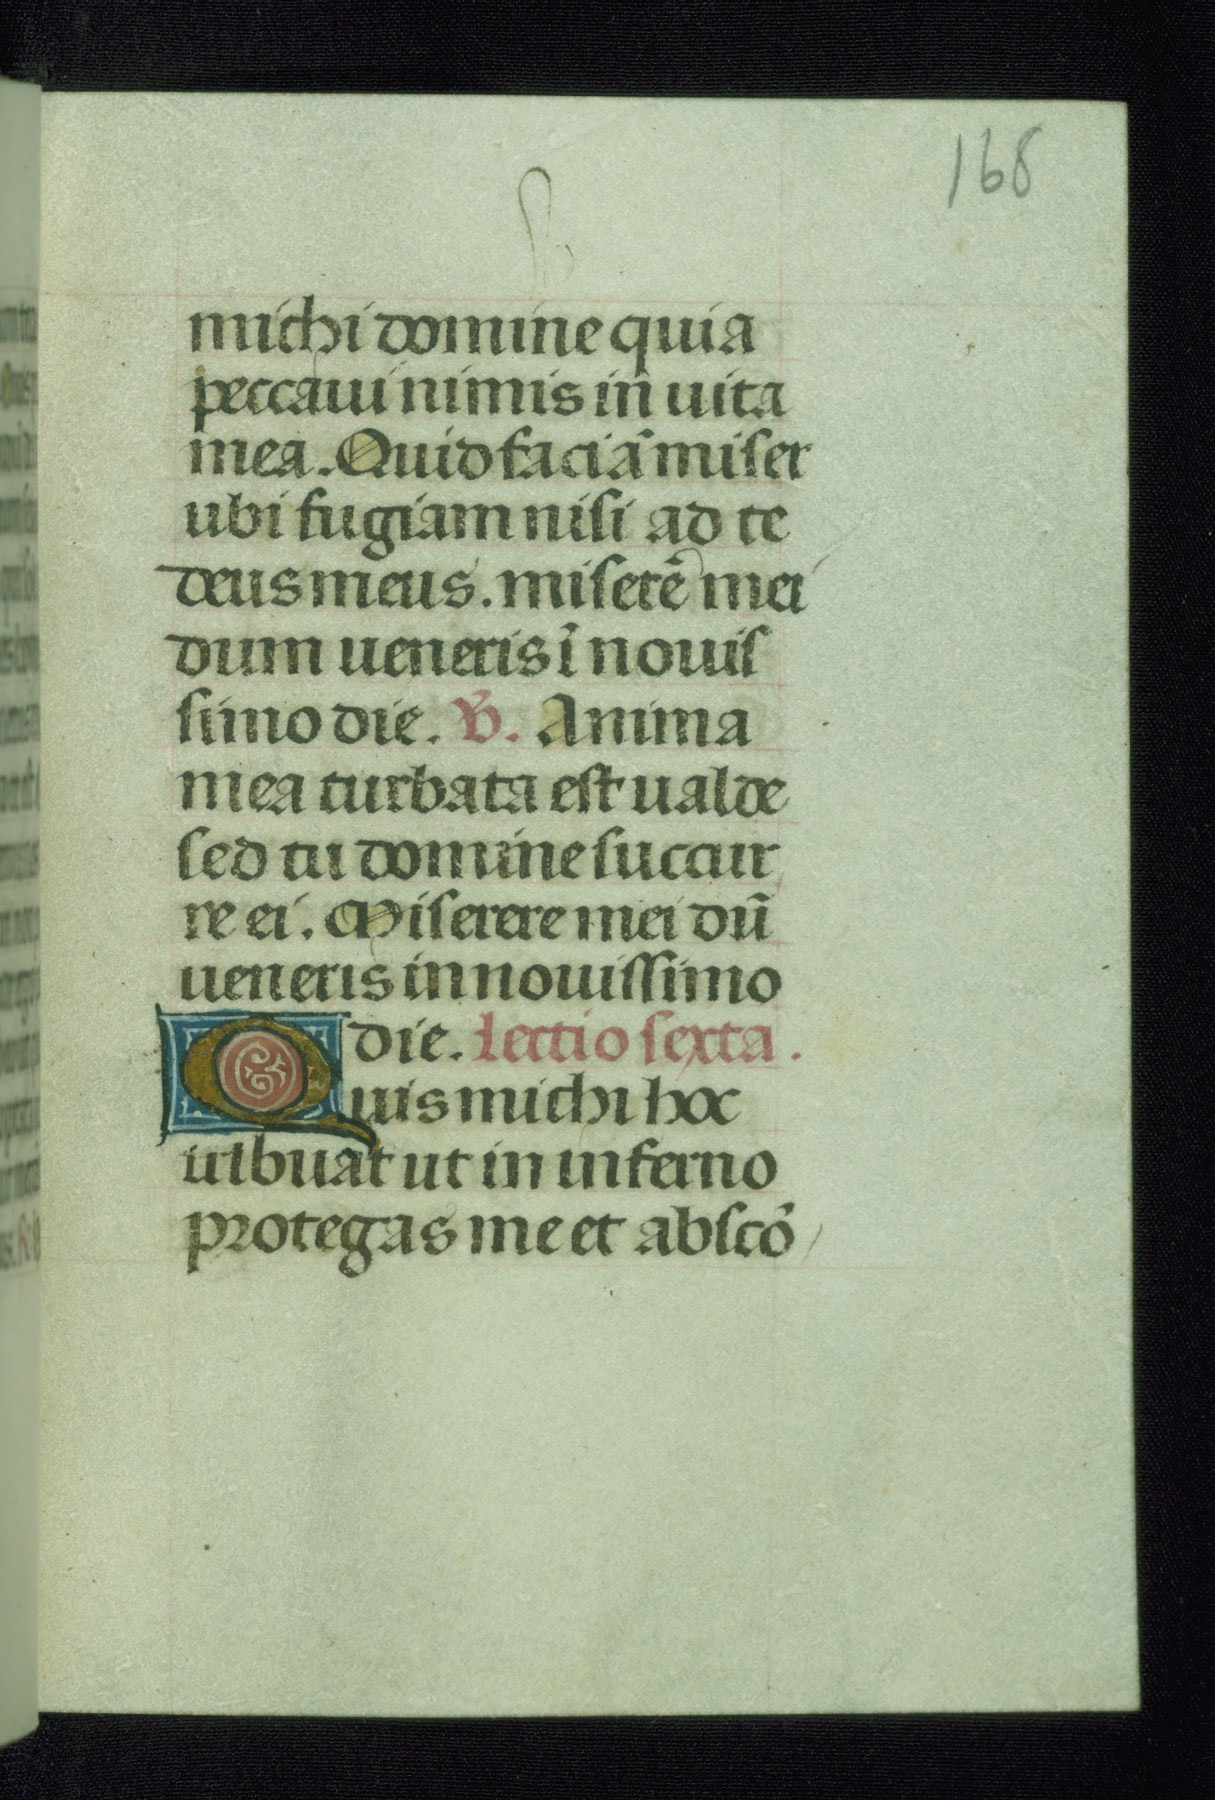 168
michi domine quia
peccaui nimis in uita
mea. Quid faciā miser
ubi fugiam nisi ad te
deus meus. miserē mei
dum ueneris ī nouis
simo die. V. Anima
mea turbata est ualde
sed tu domine succur
re ei. Miserere mei dū
ueneris in nouissimo
die. Lectio sexta.
Quis michi hoc
tribuat ut in inferno
protegas me et abscō